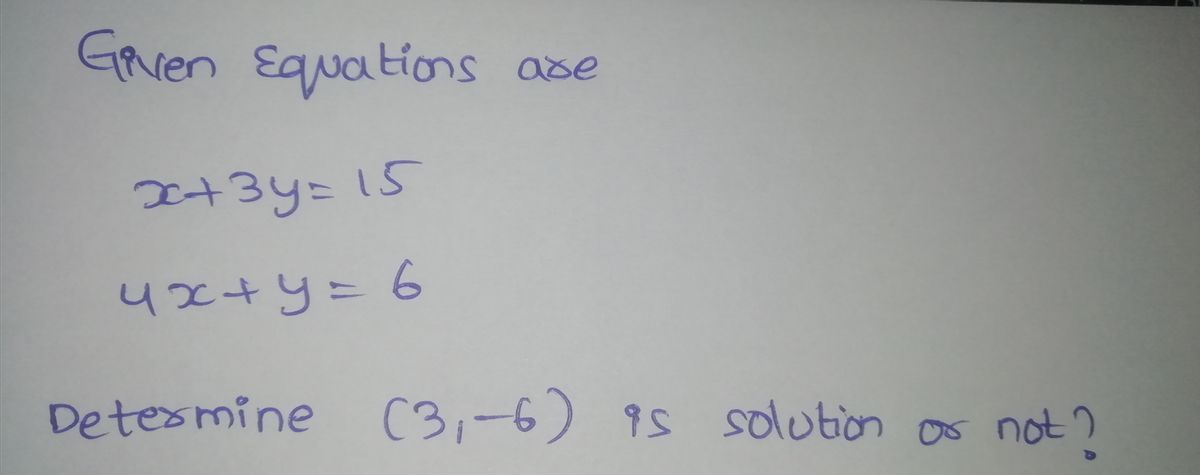 Given Equations are
x+3y=15
4x+y=6
Determine (3,-6) is solution or not?